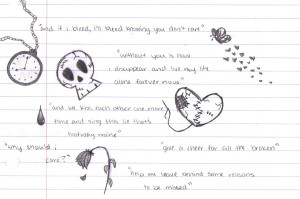 "and if i bleed, i'll bleed knowing you don't care"
"without you is how
i disappear and live my life
alone forever now"
"and we kiss each other one more
time and sing this lie that's
halfway mine"
"why should i
care?"
"give a cheer for all the broken"
"help me leave behind some reasons
to be missed"